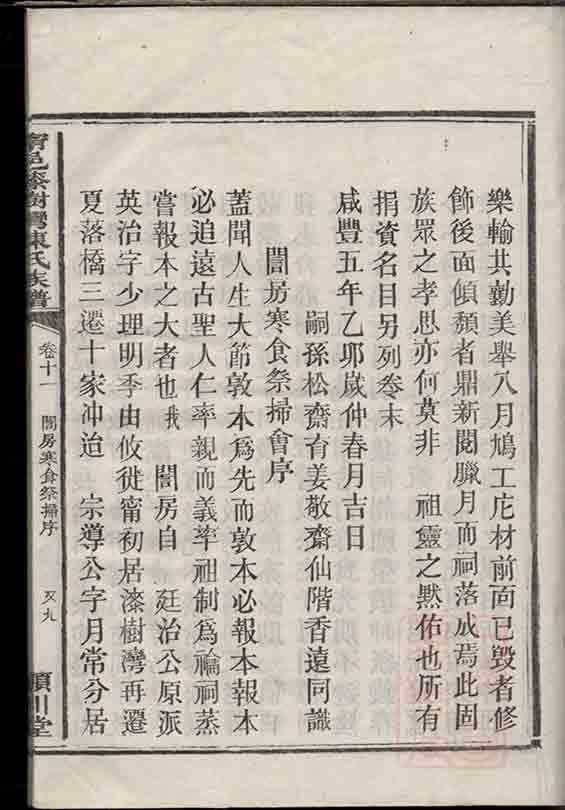 樂輸共勷美舉八月鳩工庀材前面已毀者修
飾後面傾頽者鼎新閱臘月而祠落成焉此固
族眾之孝思亦何莫非 祖靈之默佑也所有
捐資名目另列卷末
咸豐五年乙卯歲仲春月吉日
嗣孫松齋育姜敬齋仙階香遠同識
誾房寒食祭掃會序
蓋聞人生大節敦本爲先而敦本必報本報本
必追遠古聖人仁率親而義率祖制爲禴祠蒸
嘗報本之大者也我 誾房自 廷治公原派
英治字少理明季由攸徙甯初居漆樹灣再遷
夏落橋三遷十家沖迨 宗導公字月常分居
甯邑漆樹灣陳氏族譜
卷十一
誾房寒食祭掃序
潁川堂